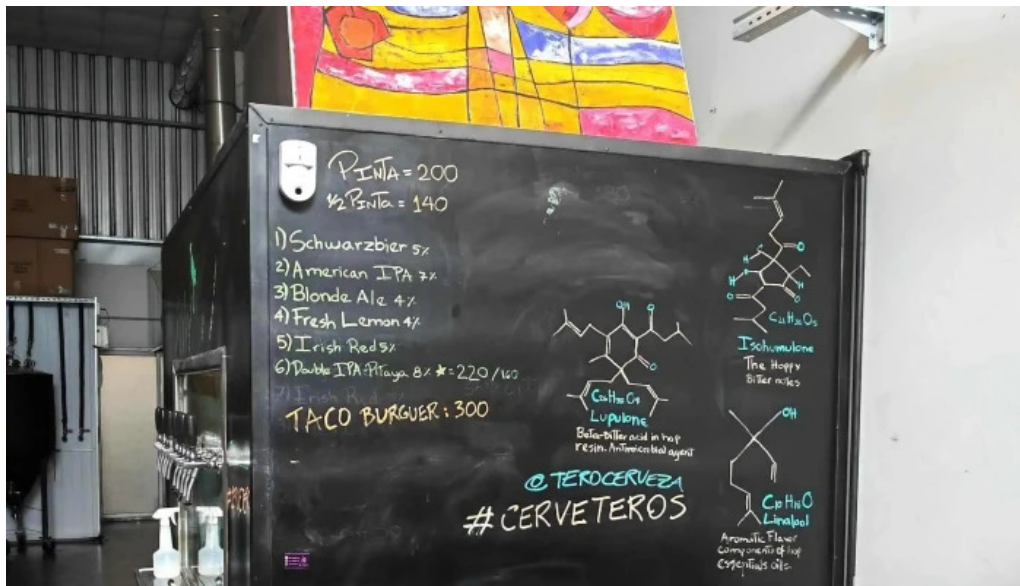 PINTA = 200
1/2 PINTA = 140
1) Schwarzbier 5%
2) American IPA 7%
3) Blonde Ale 4%
4) Fresh Lemon 4%
5) Irish Red 5%
6) Double IPA-Pitaya 8% ★ = 220 / 160
7) Irish Red
TACO BURGUER: 300
OH
O
O
C26H38O4
Lupulone
Beta-Bitter acid in hop
resin. Antimicrobial agent
@TEROCERVEZA
#CERVETEROS
O
H
H
H
O
O
C21H30O5
Isohumulone
The Hoppy
Bitter notes
OH
C10H18O
Linalool
Aromatic Flavor
Components of hop
Essentials oils.